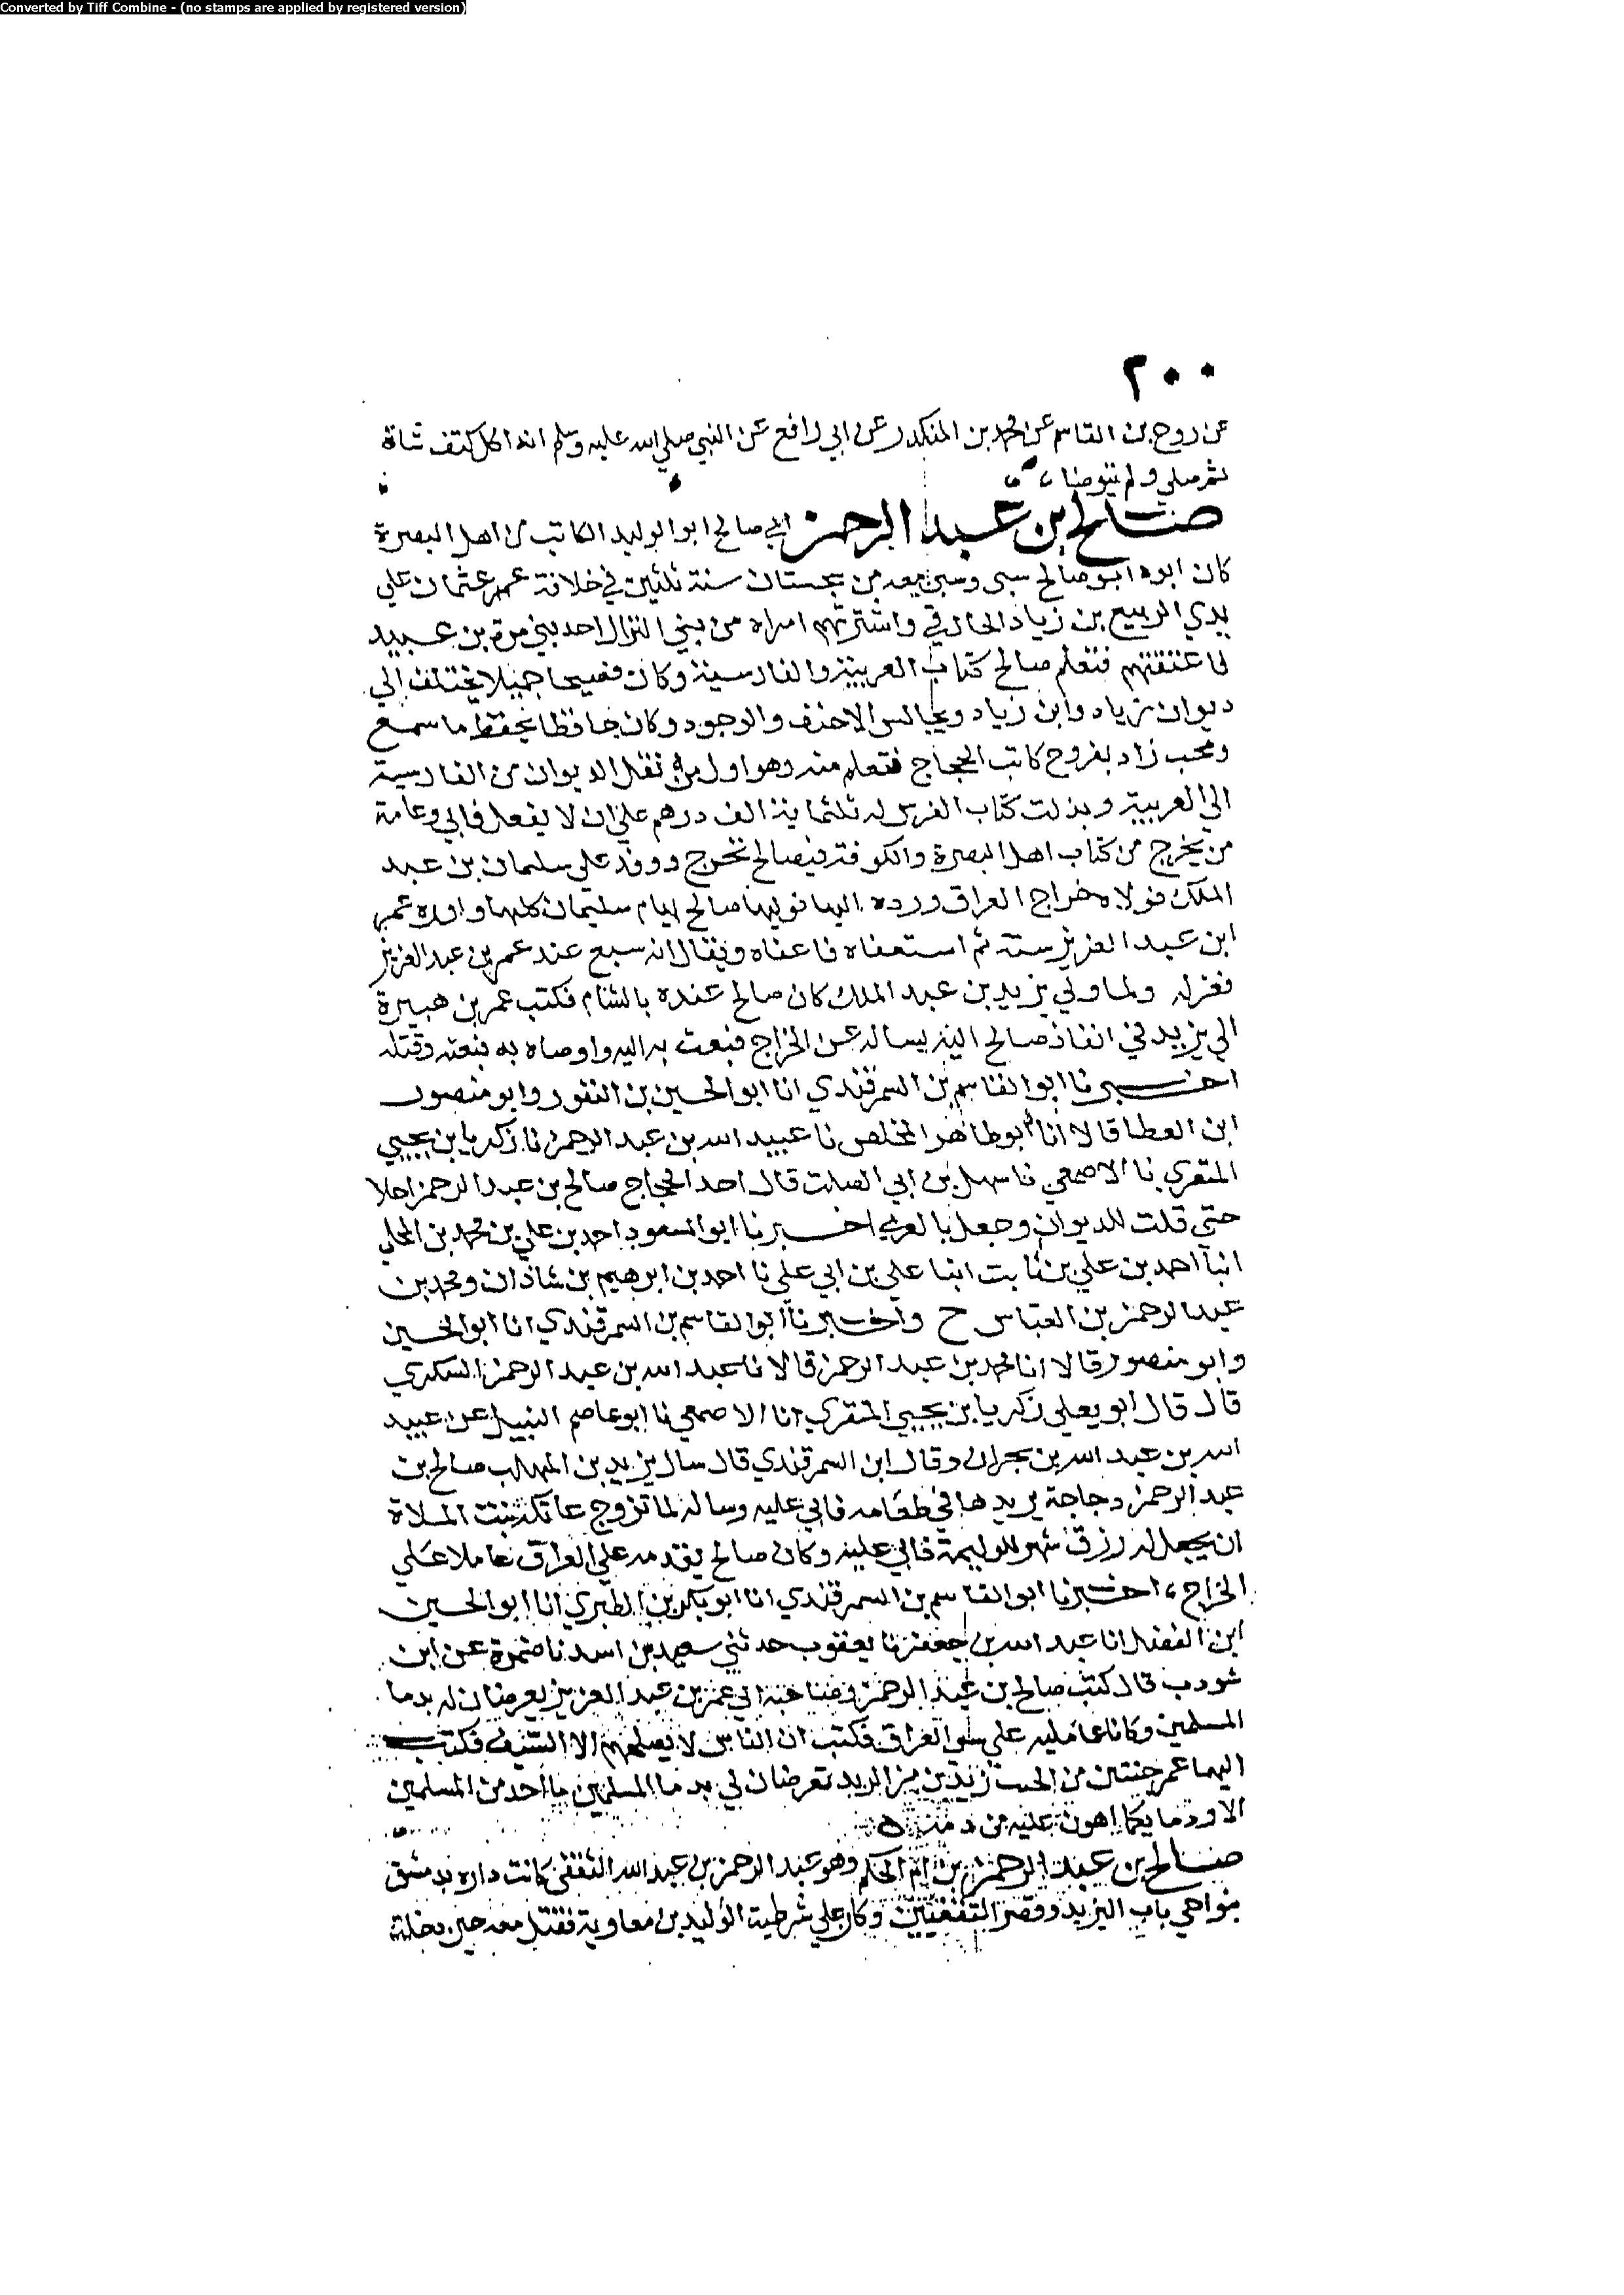 Converted by Tiff Combine - (no stamps are applied by registered version)
٢٠٠
عن روح بن القاسم عن محمد بن المنكدر عن ابي رافع عن النبي صلي الله عليه وسلم انه اكل كتف شاة
ثم صلي ولم يتوضا
صالح بن عبد الرحمن ابي صالح ابو الوليد الكاتب من اهل البصرة
كان ابوه ابو صالح سبى وسبي معه من سجستان سنة ثلثين في خلافة عثمان علي
يدي الربيع بن زياد الحارثي واشترتهم امراه من بني النزال احد بني مرة بن عبيد
فاعتقتهم فتعلم صالح كتاب العربية والفارسية وكان فصيحا جميلا يختلف الي
ديوان زياد وابن زياد ويجالس الاحنف والوجوه وكان حافظا يحفظ ما سمع
وصحب زاد بفروح كاتب الحجاج فتعلم منه وهو اول من نقل الديوان من الفارسية
الي العربية وبذلت كتاب الفرس له ثلثماية الف درهم علي ان لا يفعل فابي وعامة
من يخرج من كتاب اهل البصرة والكوفة فبصالح تخرج ووفد علي سليمان بن عبد
الملك فولاه خراج العراق ورده اليها فوليها صالح ايام سليمان كلها واقره عمر
ابن عبد العزيز سنة ثم استعفاه فاعفاه ويقال انه سبع عند عمر بن عبد العزيز
فعزله ولما ولي يزيد بن عبد الملك كان صالح عنده بالشام فكتب عمر بن هبيرة
الي يزيد في انفاذ صالح اليه يساله عن الخراج فبعث به اليه واوصاه به فعذبه وقتله
اخبرنا ابو القاسم بن السمرقندي انا ابو الحسين بن النقور وابو منصور
ابن العطا قالا انا ابو طاهر المخلص نا عبيد الله بن عبد الرحمن نا زكريا بن يحيي
المنقري نا الاصمعي نا سهل بن ابي الصلت قال احد الحجاج صالح بن عبد الرحمن اجلا
حتي قلت للديوان وجعل بالعربي اخبرنا ابو السعود احمد بن علي بن محمد بن المجلي
انبا احمد بن علي بن ثابت ابنا علي بن ابي علي نا احمد بن ابرهيم بن شاذان ومحمد بن
عبد الرحمن بن العباس ح واخبرنا ابو القاسم بن السمرقندي انا ابو الحسين
وابو منصور قالا انا محمد بن عبد الرحمن قالا نا عبد الله بن عبد الرحمن السكري
قال قال ابو يعلى زكريا بن يحيي المنقري انا الاصمعي نا ابو عاصم النبيل عن عبيد
الله بن عبد الله بن بحران وقال ابن السمرقندي قال سال يزيد بن المهلب صالح بن
عبد الرحمن دجاجة يريدها في طعامه فابي عليه وساله لما تزوج عاتكة بنت الملاة
ان يجعل له رزق شهر للوليمة فابي عليه وكان صالح يقدمه علي العراق عاملا علي
الخراج، اخبرنا ابو القاسم بن السمرقندي انا ابو بكر بن الطبري انا ابو الحسين
ابن الفضل انا عبد الله بن جعفر نا يعقوب حدثني سعيد بن اسد نا ضمرة عن ابن
شوذب قال كتب صالح بن عبد الرحمن وصاحبه الي عمر بن عبد العزيز يعرضان له بدما
المسلمين وكانا عامليه علي العراق فكتب ان الناس لا يصلحهم الا السيف فكتب
اليهما عمر خبيثين من الخبث رذيين من الربد تعرضان لي بدما المسلمين ما احد من المسلمين
الا ودمايكما اهون عليه من دمه ٥
صالح بن عبد الرحمن بن ام الحكم وهو عبد الرحمن بن عبد الله الثقفي كانت داره بدمشق
بنواحي باب البزيد وقصر الثقفيين وكان علي شرطة الوليد بن معاوية فقتل معه حين دخلة